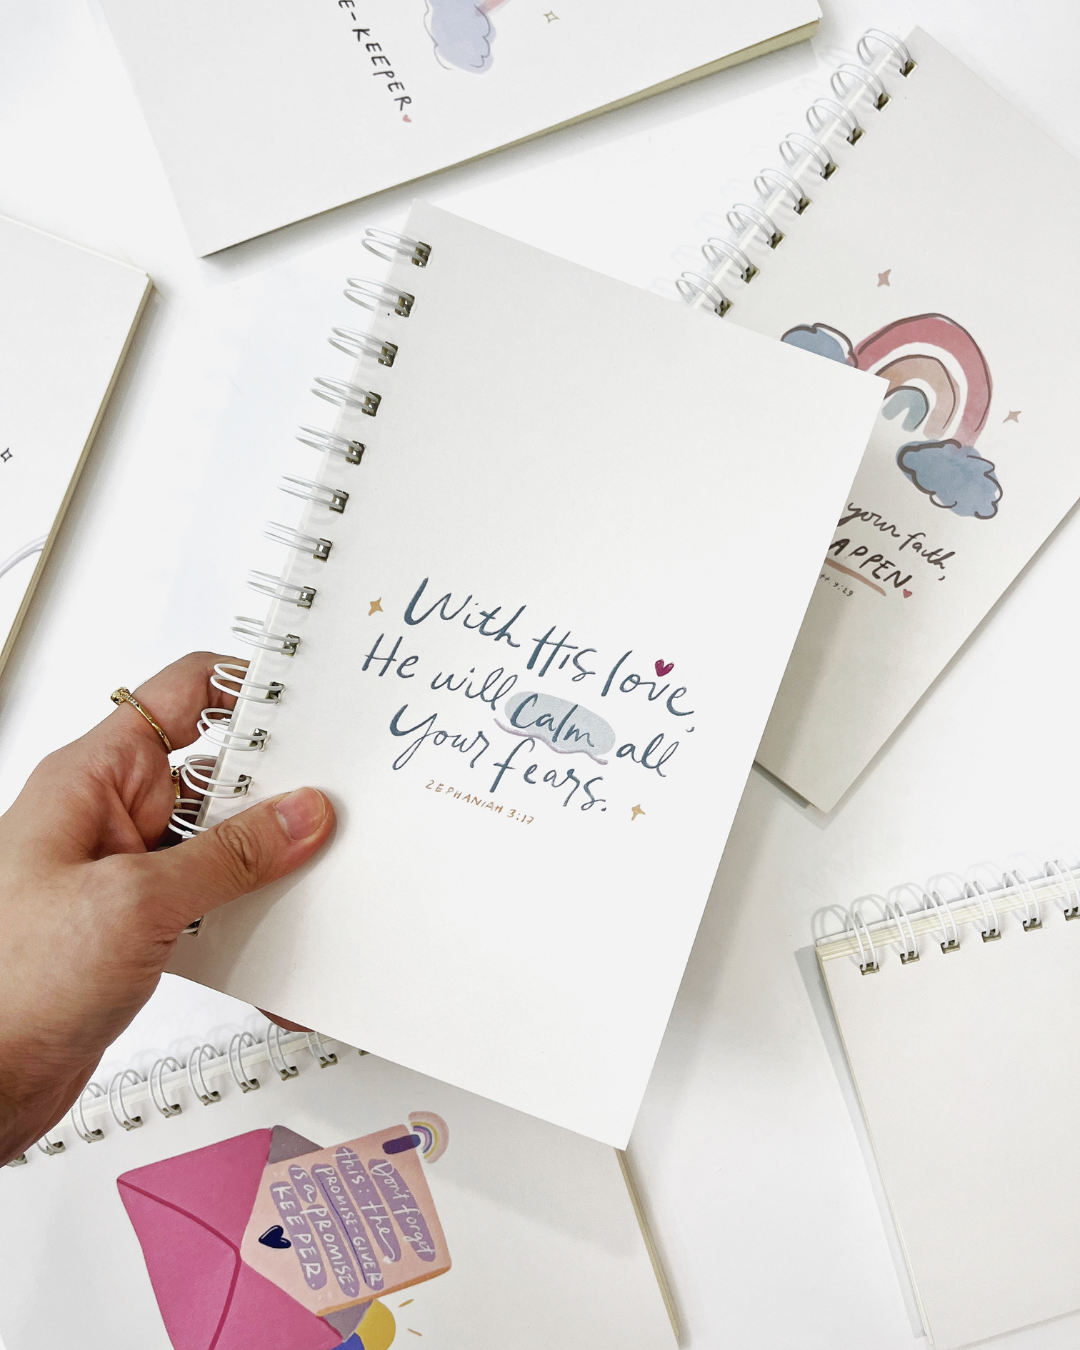 E-KEEPER
your faith,
APPEN
With His love,
He will calm all
Your fears.
ZEPHANIAH 3:17
Don't forget
this: the
PROMISE-GIVER
is a PROMISE-
KEEPER.